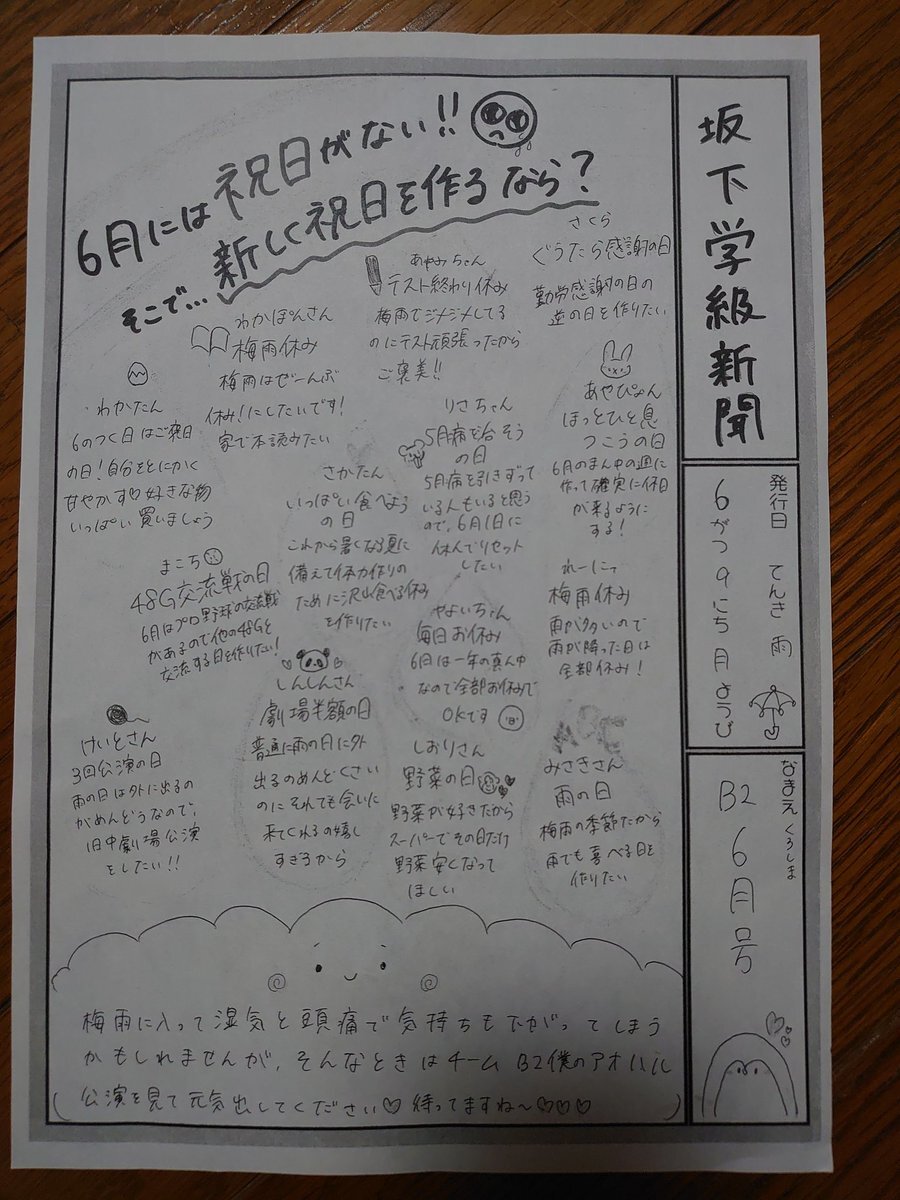 坂下学級新聞
発行日 てんき 雨
6がつ9にち月ようび
なまえ くろしま
B2 6月号
6月には祝日がない!!
そこで…新しく祝日を作るなら?
さくら
ぐうたら感謝の日
勤労感謝の日の
逆の日を作りたい
あやみちゃん
テスト終わり休み
梅雨でジメジメしてる
のにテスト頑張ったから
ご褒美!!
わかぽんさん
梅雨休み
梅雨はぜーんぶ
休み!にしたいです!
家で本読みたい
わかたん
6のつく日はご褒日
の日!自分をとにかく
甘やかす♡好きな物
いっぱい買いましょう
あやぴょん
ほっとひと息
つこうの日
6月のまん中の週に
作って確実に休日
が来るように
する!
りさちゃん
5月病を治そう
の日
5月病を引きずって
いる人もいると思う
ので、6月1日に
休んでリセット
したい
さかたん
いっぱい食べよう
の日
これから暑くなる夏に
備えて体力作りの
ために沢山食べる休み
を作りたい
まこち
48G交流戦の日
6月はプロ野球の交流戦
があるので他の48Gと
交流する日を作りたい!
れーにゃ
梅雨休み
雨が多いので
雨が降った日は
全部休み!
やよいちゃん
毎日お休み
6月は一年の真ん中
なので全部お休みで
OKです
しんしんさん
劇場半額の日
普通に雨の日に外
出るのめんどくさい
のにそれでも会いに
来てくれるの嬉し
すぎるから
けいとさん
3回公演の日
雨の日は外に出るの
がめんどうなので、
1日中劇場公演
をしたい!!
しおりさん
野菜の日
野菜が好きだから
スーパーでその日だけ
野菜安くなって
ほしい
みさきさん
雨の日
梅雨の季節だから
雨でも喜べる日を
作りたい
梅雨に入って湿気と頭痛で気持ちも下がってしまう
かもしれませんが、そんなときはチームB2僕のアオハル
公演を見て元気出してください♡待ってますね〜♡♡♡